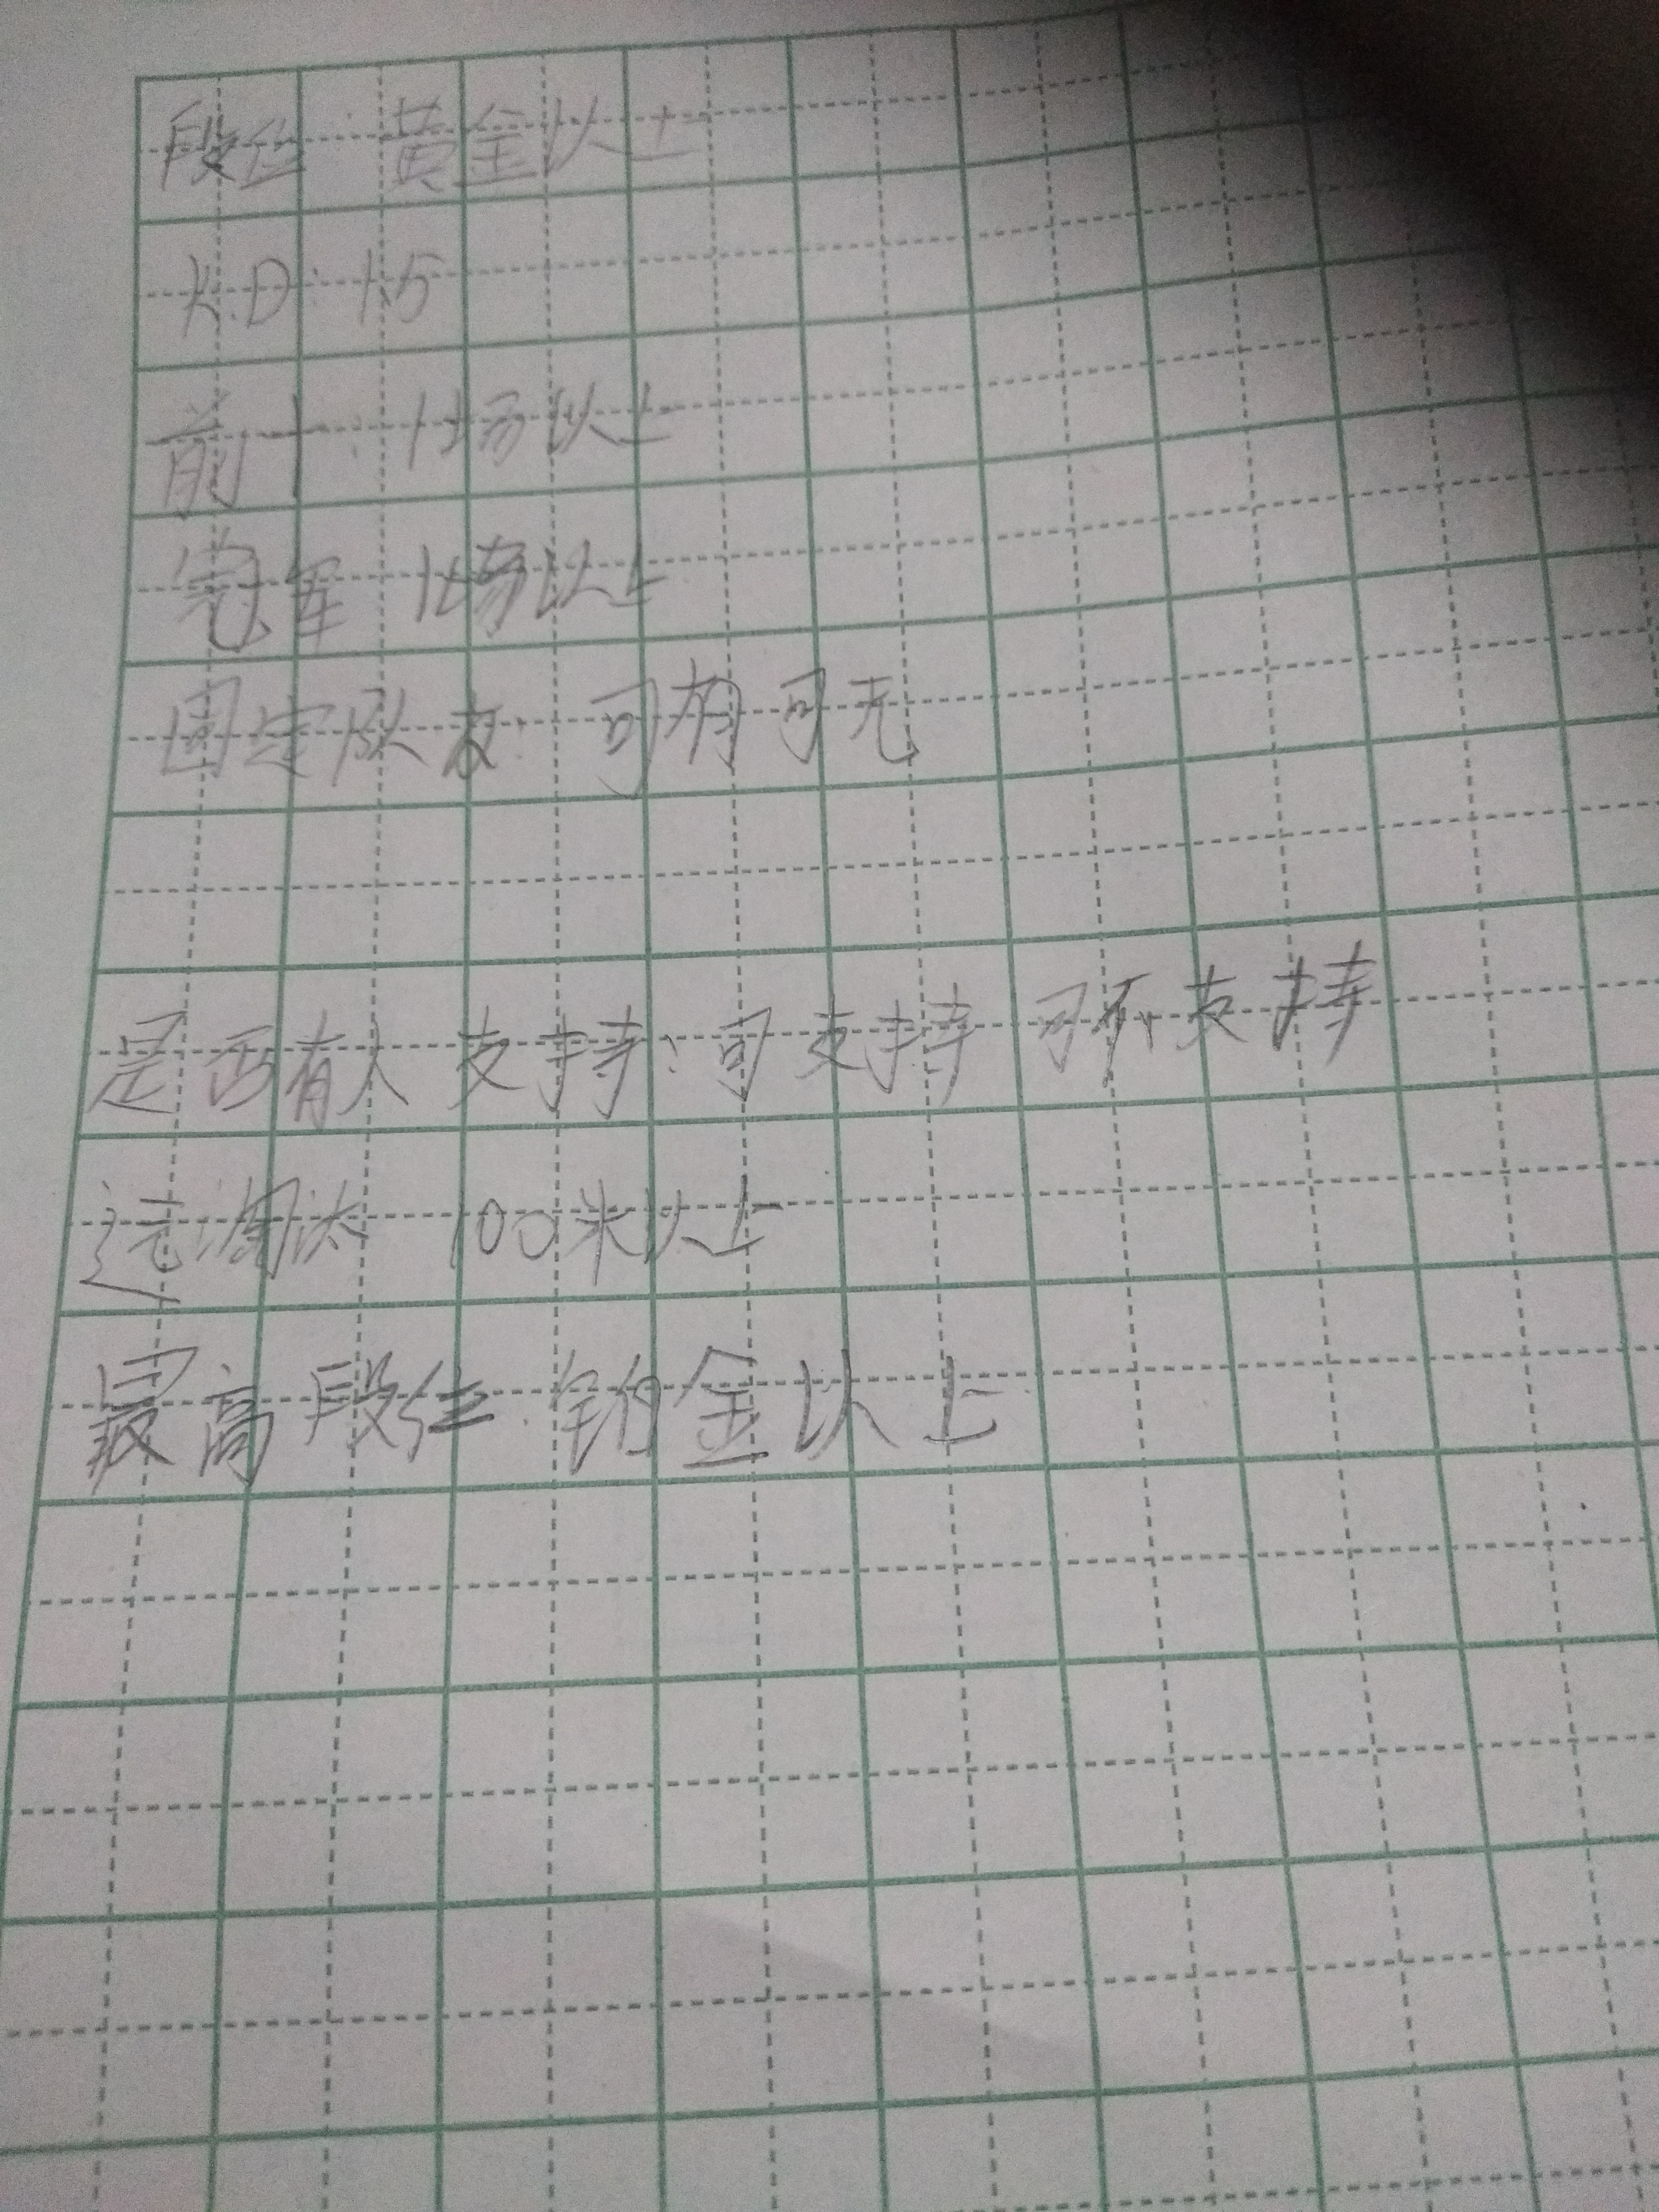 段位:黄金以上
K.D:1.5
前十:1场以上
冠军 1场以上
固定队友:可有可无
是否有人支持:可支持 可不支持
远淘汰 100米以上
最高段位:铂金以上